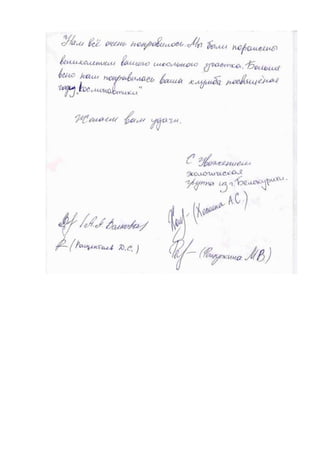 Нам всё очень понравилось. Мы были поражены
великолепием вашего школьного участка. Больше
всего нам понравилась ваша клумба посвящёная
году "Космонавтики"
Желаем вам удачи.
С Уважением
экологическая
группа из г. Белокуриха.
(А.А. Волкова)
(Д.С.)
(А.С.)
(М.В)